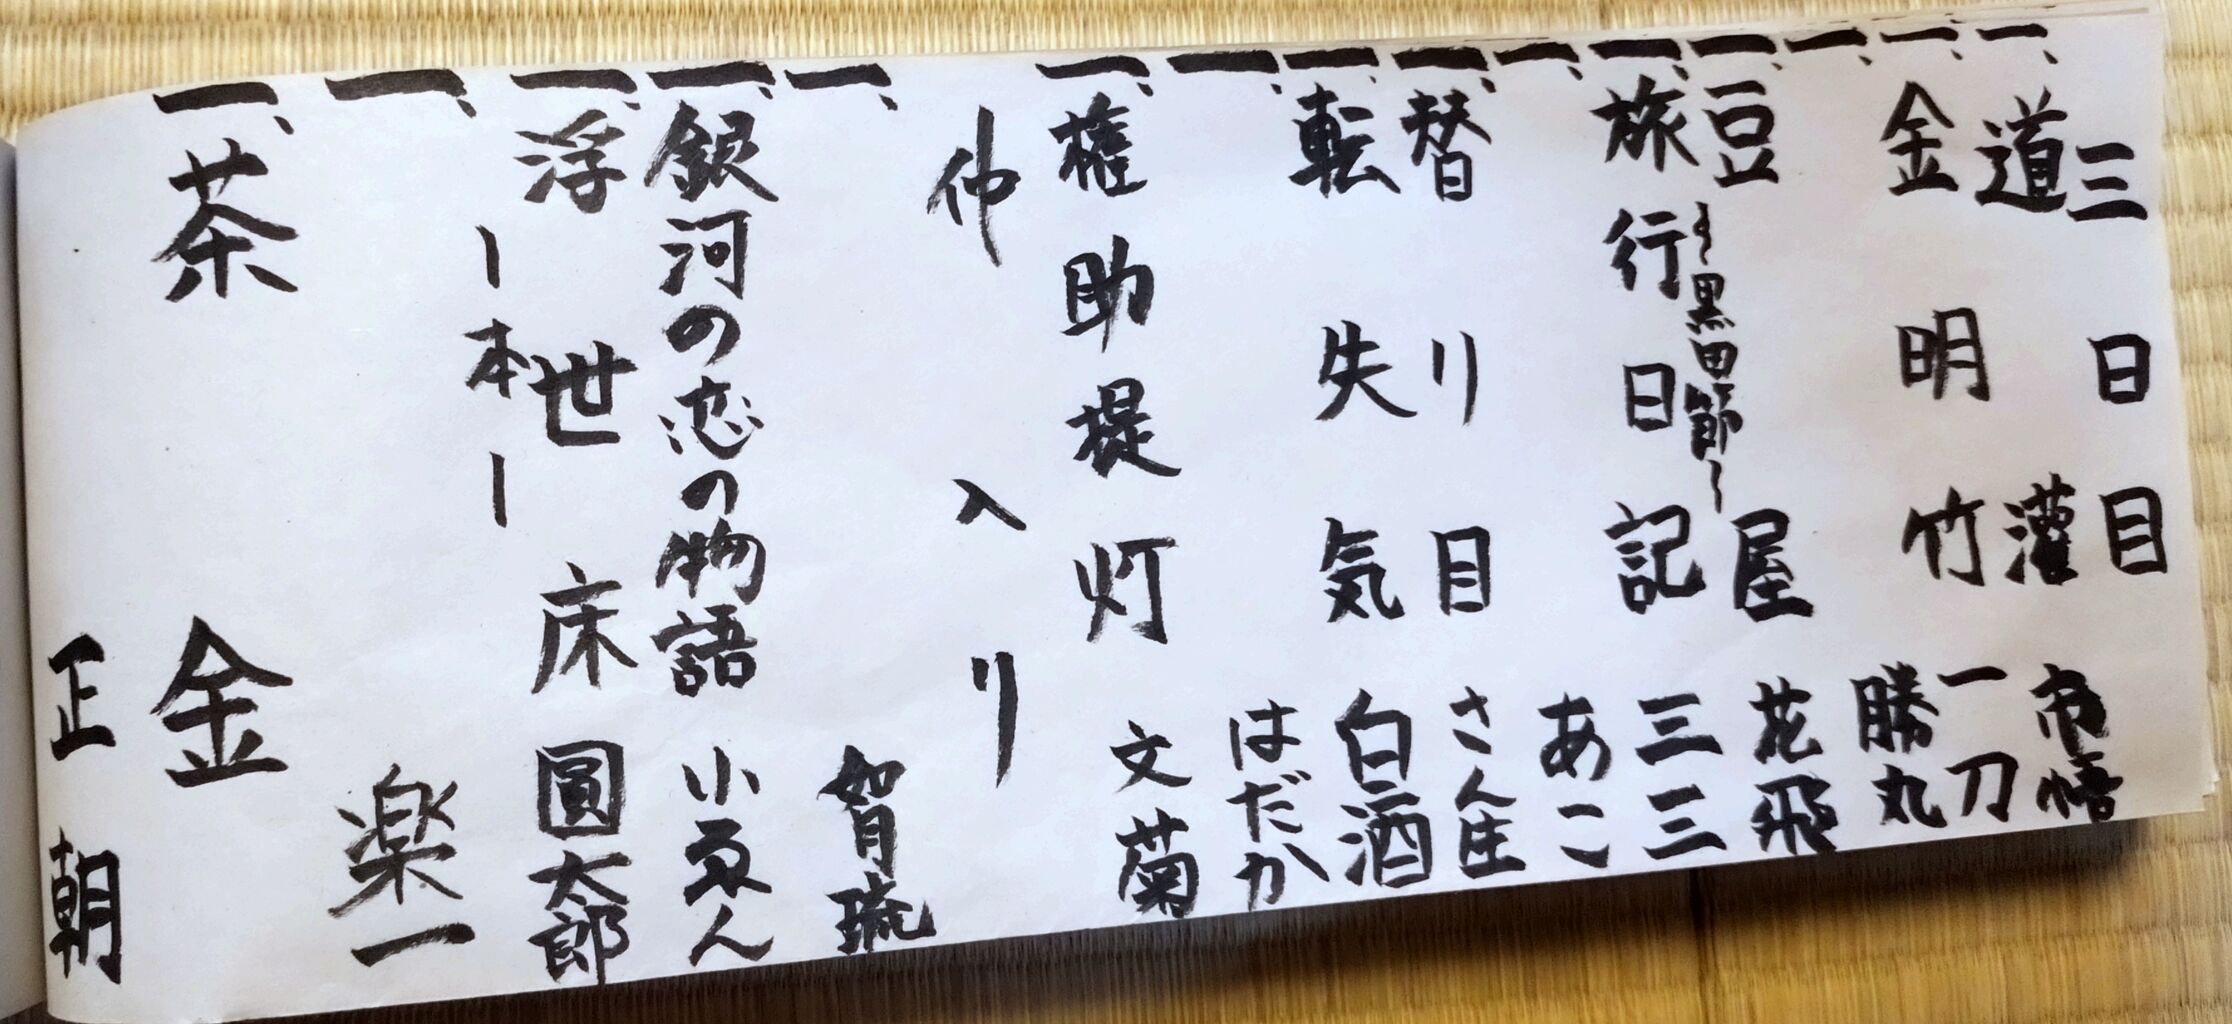 三日目
一、道灌 市悟
一、金明竹 一刀
一、勝丸
一、豆屋 〜黒田節〜 花飛
一、旅行日記 三三
一、あこ
一、替り目 さん生
一、転失気 白酒
一、はだか
一、権助提灯 文菊
仲入り
一、賀琉
一、銀河の恋の物語 小ゑん
一、浮世床 ー本ー 圓太郎
一、楽一
一、茶金 正朝